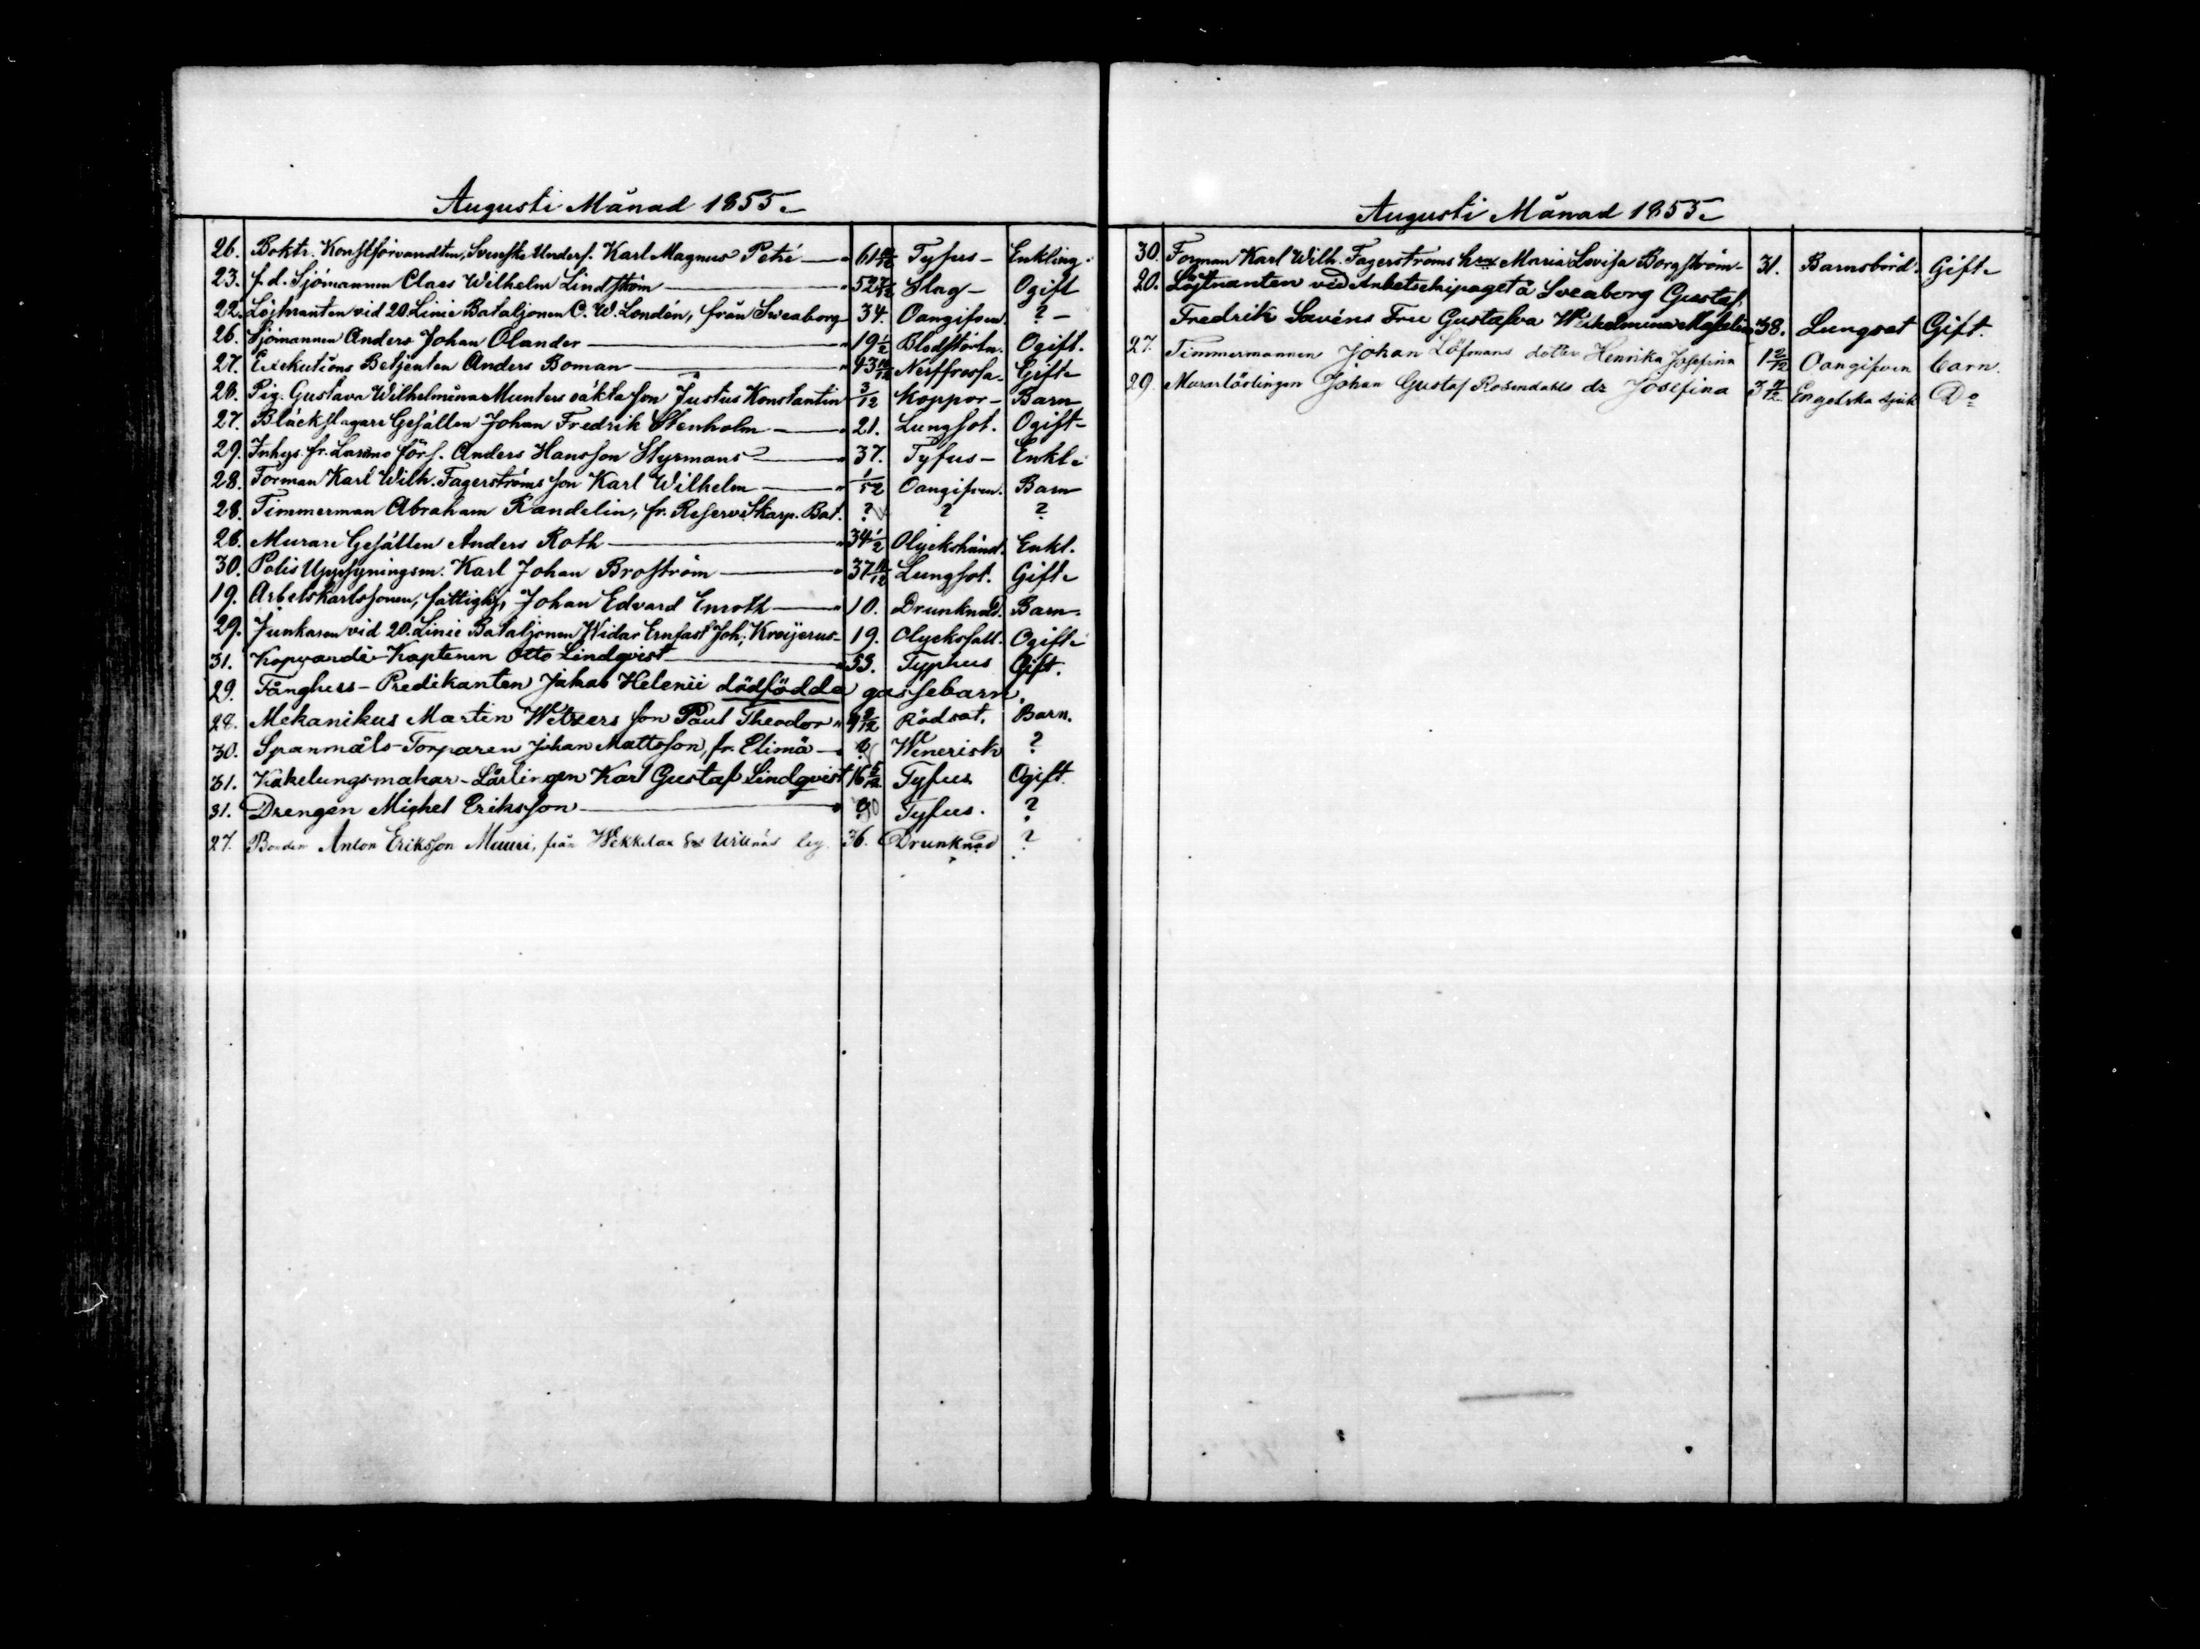 Augusti Månad 1855.
26. Boktr. Konstförvandten, Svenske Unders. Karl Magnus Petré — Tyfus – Enkling.
23. f.d. Sjömannen Claes Wilhelm Lindström — Slag – Ogift
22. Löjtnanten vid 20. Linie Bataljonen C. W. Londén, från Sveaborg 34. Oangifven. ? –
26. Sjömannen Anders Johan Olander — 19 1/2 Blodstörtn. Ogift.
27. Exekutions Betjenten Anders Boman — Gift
28. Pig. Gustava Wilhelmina Munters oäkta son Justus Konstantin 3/12 Koppor – Barn
27. Bläckslagare Gesällen Johan Fredrik Stenholm — 21. Lungsot. Ogift –
29. Inhys. fr. förs. Anders Hansson Styrmans — 37. Tyfus – Enkl.
28. Forman Karl Wilh. Fagerströms son Karl Wilhelm — 1/52 Oangifven. Barn
28. Timmerman Abraham Randelin, fr. Reserv Skarp. Bat. ? ? ?
28. Murare Gesällen Anders Roth — 34 1/2 Olyckshänd. Enkl.
30. Polis Uppsyningsm. Karl Johan Broström — Lungsot. Gift
19. Arbetskarlssonen, fattighj. Johan Edvard Enroth — 10. Drunknad. Barn
29. Junkaren vid 20. Linie Bataljonen Widar Ernfast Joh. Kreijerus 19. Olycksfall. Ogift
31. Kopvardi-Kaptenen Otto Lindqvist — 53. Typhus Gift.
29. Fånghus-Predikanten Jakob Helenii dödfödda gossebarn.
28. Mekanikus Martin Wetzers son Paul Theodor Rödsot. Barn.
30. Spanmåls-Torparen Johan Mattsson, fr. Elimä — ? Wenerisk ?
31. Kakelungsmakar-Lärlingen Karl Gustaf Lindqvist 16 5/12 Tyfus Ogift.
31. Drengen Michel Eriksson — Tyfus. ?
27. Bonden Anton Eriksson Muuri, från Wekkelax 36. Drunknad ?
Augusti Månad 1855.
30. Forman Karl Wilh. Fagerströms hru Maria Lovisa Borgström – 31. Barnsbörd. Gift
20. Löjtnanten vid Arbetsekipaget å Sveaborg Gustaf
Fredrik Savéns Fru Gustafva Wilhelmina 38. Lungsot Gift.
27. Timmermannen Johan Löfmans dotter Henrika Josefina 1 2/12 Oangifven barn.
29. Murarlärlingen Johan Gustaf Rosendahls dr Josefina Engelska sjuk Do